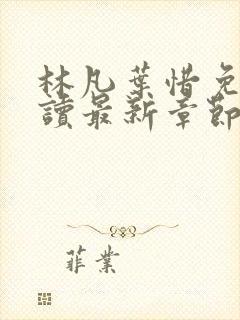 林凡葉惜免
讀最新章節
菲業